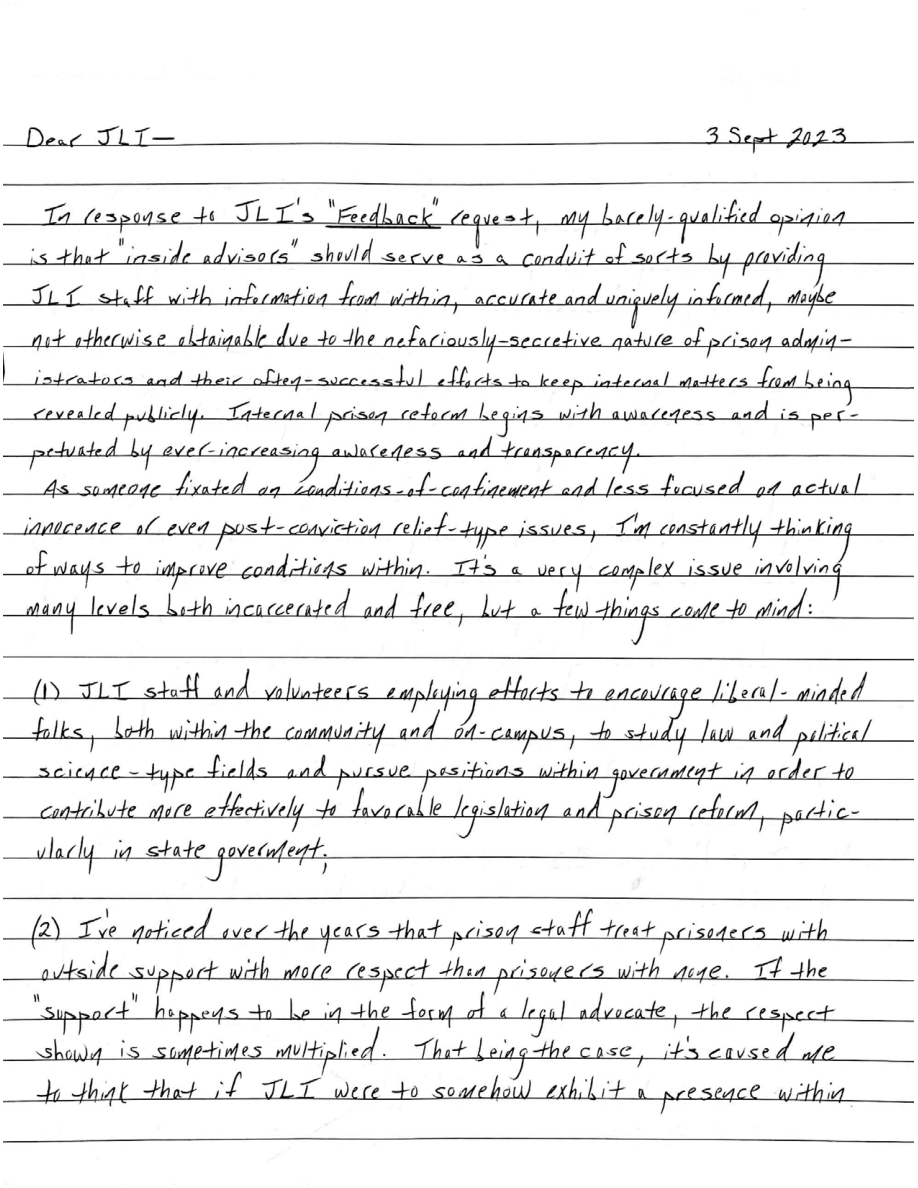 Dear JLI—
3 Sept 2023
In response to JLI's "Feedback" request, my barely-qualified opinion
is that "inside advisors" should serve as a conduit of sorts by providing
JLI staff with information from within, accurate and uniquely informed, maybe
not otherwise obtainable due to the nefariously-secretive nature of prison admin-
istrators and their often-successful efforts to keep internal matters from being
revealed publicly. Internal prison reform begins with awareness and is per-
petuated by ever-increasing awareness and transparency.
As someone fixated on conditions-of-confinement and less focused on actual
innocence or even post-conviction relief-type issues, I'm constantly thinking
of ways to improve conditions within. It's a very complex issue involving
many levels both incarcerated and free, but a few things come to mind:
(1) JLI staff and volunteers employing efforts to encourage liberal-minded
folks, both within the community and on-campus, to study law and political
science-type fields and pursue positions within government in order to
contribute more effectively to favorable legislation and prison reform, partic-
ularly in state goverment;
(2) I've noticed over the years that prison staff treat prisoners with
outside support with more respect than prisoners with none. If the
"support" happens to be in the form of a legal advocate, the respect
shown is sometimes multiplied. That being the case, it's caused me
to think that if JLI were to somehow exhibit a presence within